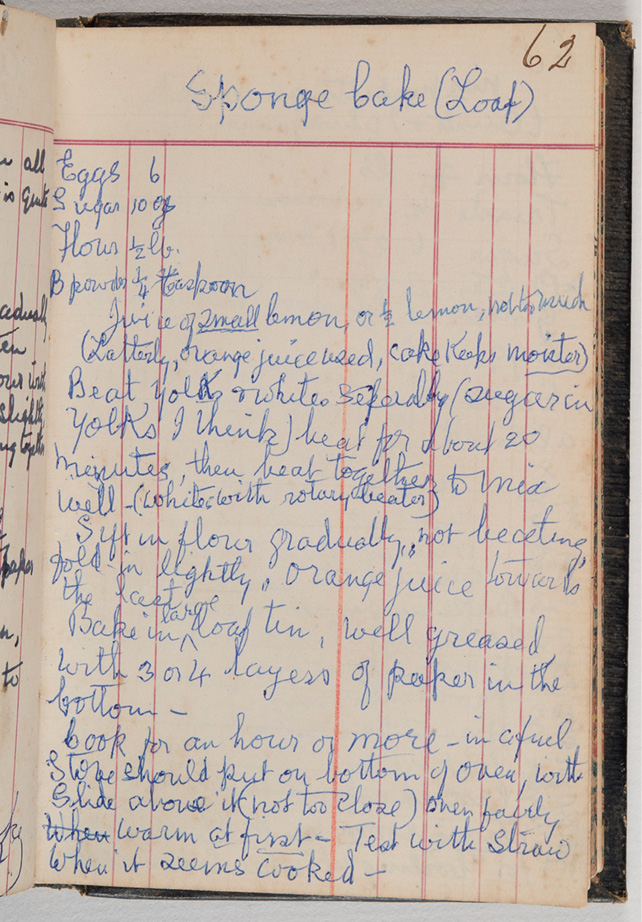 62
Sponge Cake (Loaf)
Eggs 6
Sugar 10 ozs
Flour ½ lb.
B powder ¼ teaspoon
Juice of small lemon, or ½ lemon, not too much
(Latterly, orange juice used, cake keeps moister)
Beat yolks & whites separately (sugar in
yolks I think) beat for about 20
minutes, then beat together to mix
well - (whites with rotary beater)
Sift in flour gradually, not beating,
fold in lightly, orange juice towards
the last
Bake in large loaf tin, well greased
with 3 or 4 layers of paper in the
bottom -
Cook for an hour or more - in a fuel
stove should put on bottom of oven, with
slide above it (not too close) oven fairly
When warm at first - Test with straw
when it seems cooked -
all
is quite
slightly
paper
to